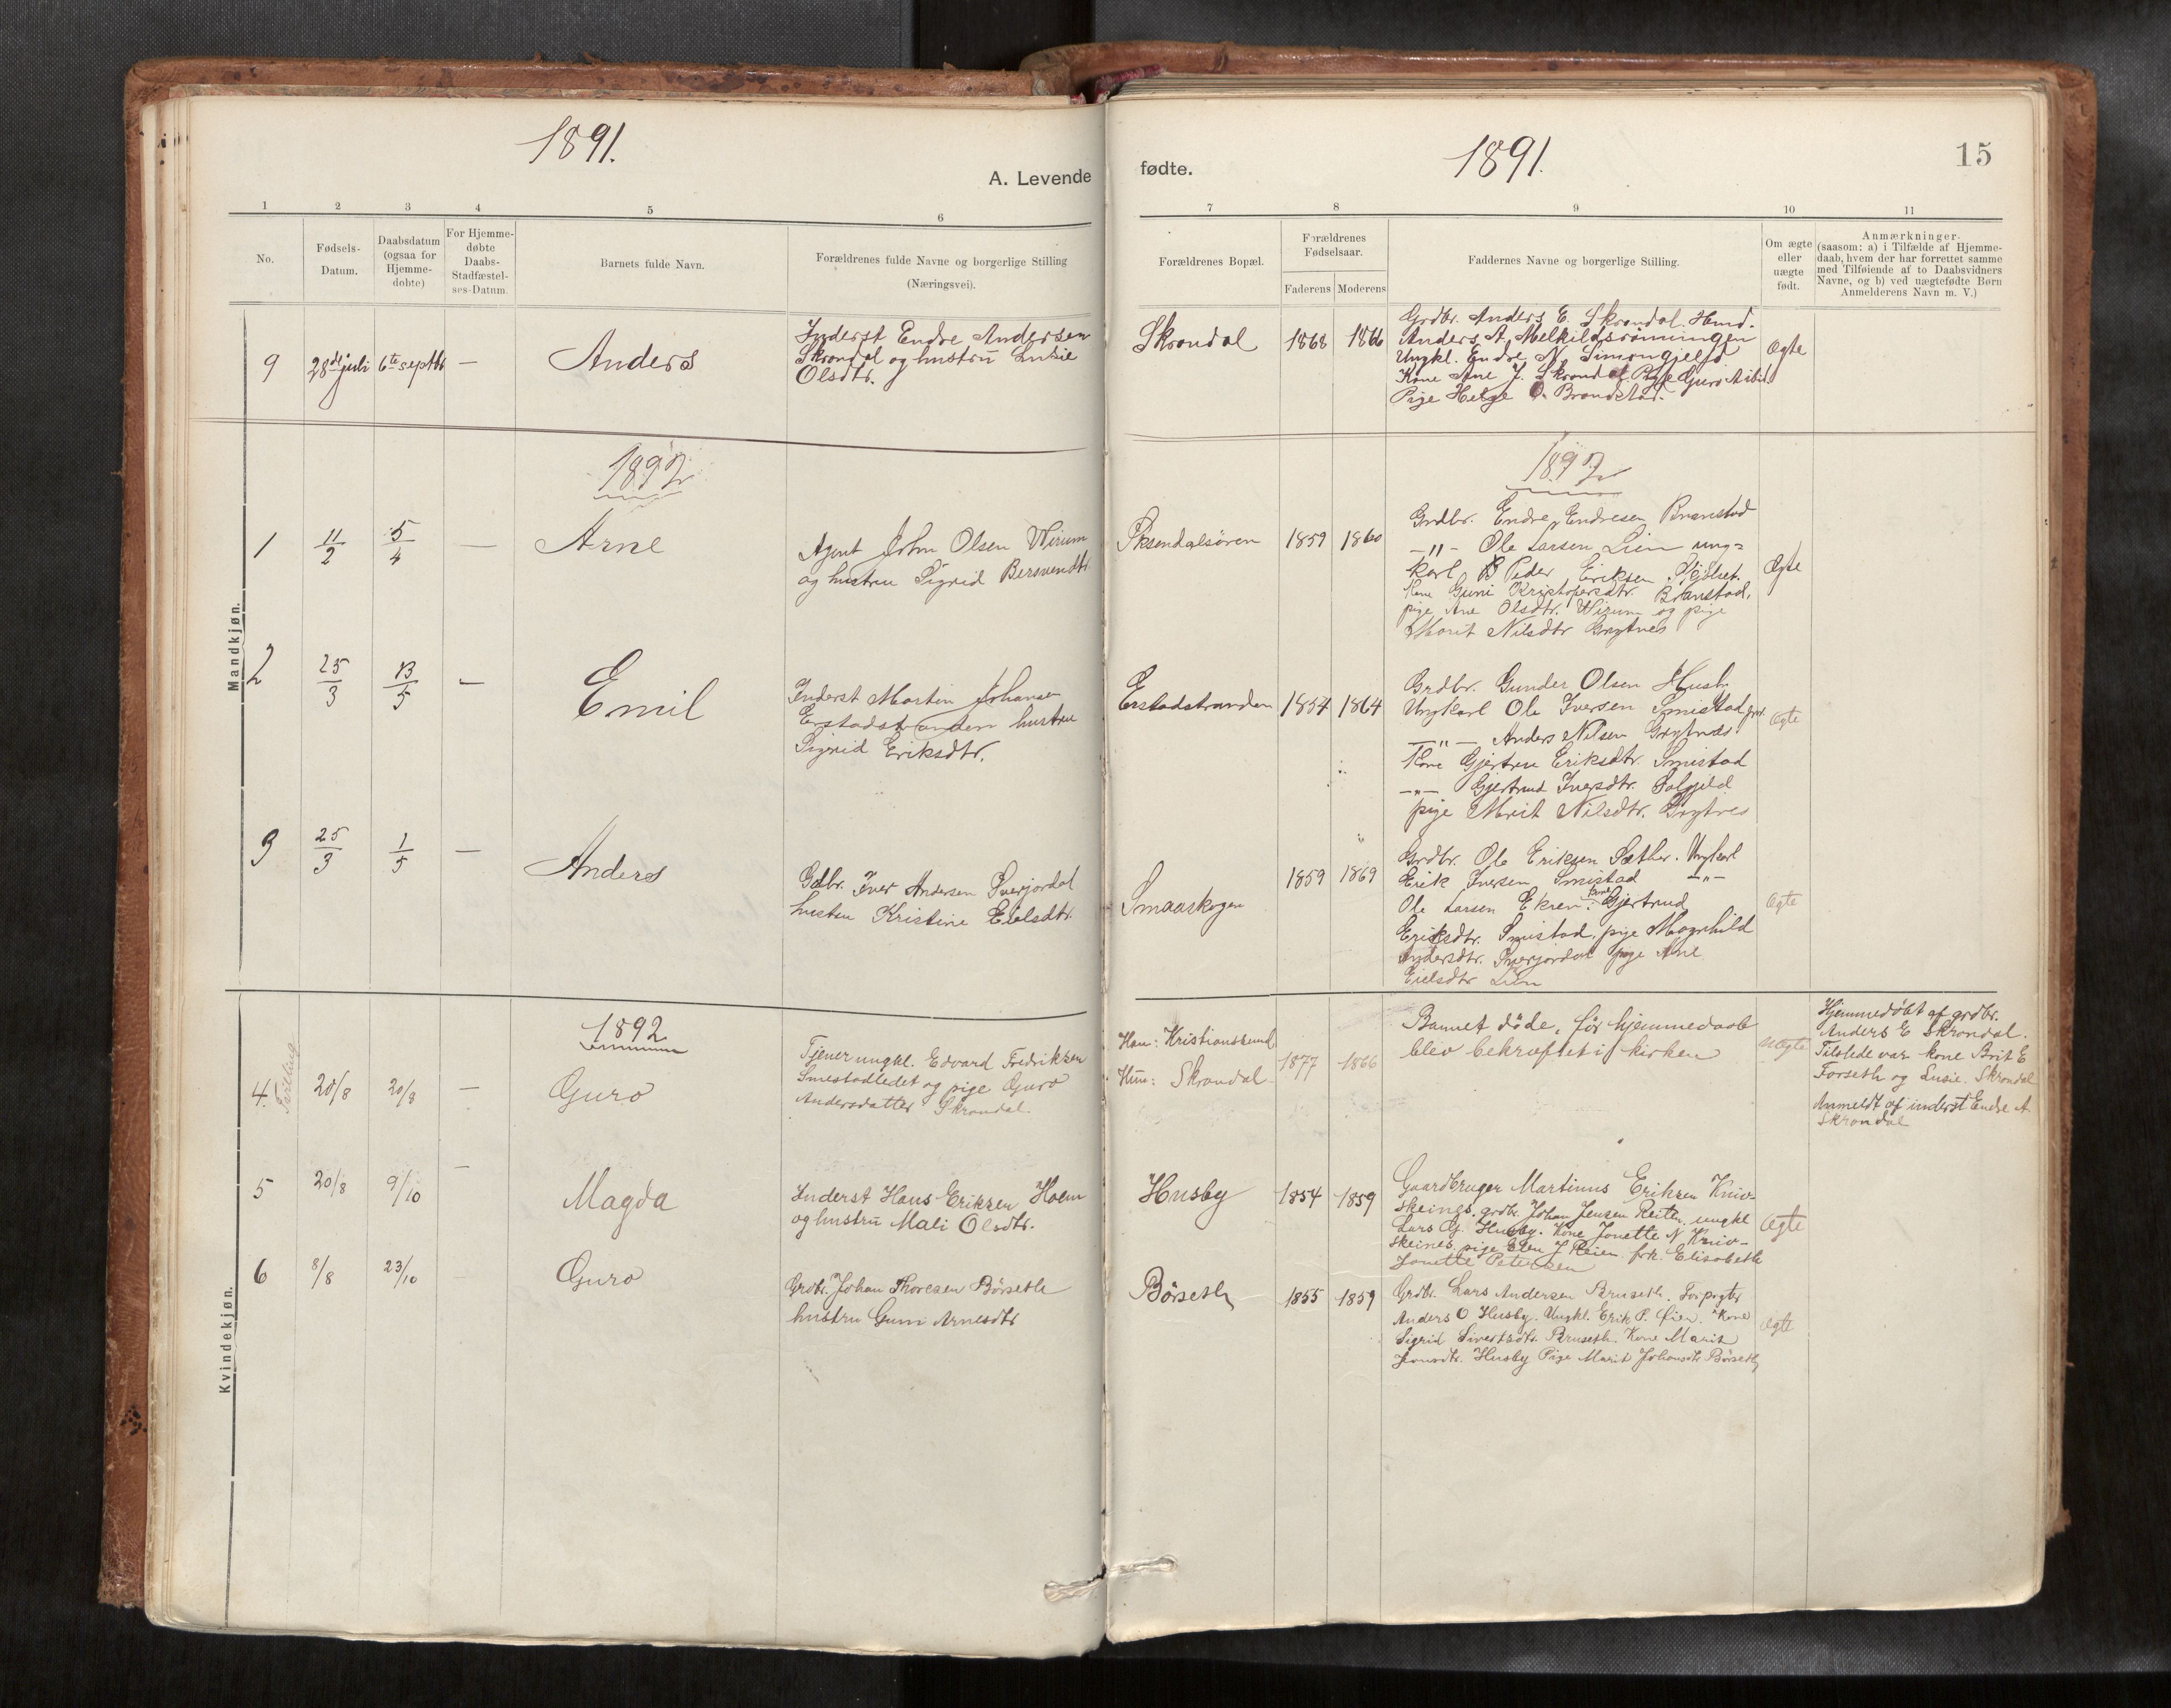 1891.
A. Levende
1 2 3 4 5 6
No.
Fødsels-
Datum.
Daabsdatum
(ogsaa for
Hjemme-
døbte)
For Hjemme-
døbte
Daabs-
Stadfæstel-
ses-Datum.
Barnets fulde Navn.
Forældrenes fulde Navne og borgerlige Stilling
(Næringsvei).
Mandkjøn.
9 28de juli 6te septbr — Anders
Inderst Endre Andersen
Skrondal og hustru Lusie
Olsdtr.
1892
1 11/2 5/4 — Arne
Agent John Olsen Wirum
og hustru Sigrid Bersvendtr
2 25/3 13/5 — Emil
Inderst Martin Johansen
Erstadstranden hustru
Sigrid Eriksdtr.
3 25/3 1/5 — Anders
Gdbr. Iver Andersen Sverjordal
hustru Kristine Eielsdtr.
1892
4. Tvilling 20/8 20/8 — Guro
Tjener ungkl. Edvard Fredriksen
Smestadledet og pige Guro
Andersdatter Skrondal.
5 20/8 9/10 — Magda
Inderst Hans Eriksen Holm
og hustru Mali Olsdtr.
Kvindekjøn.
6 8/8 23/10 Guro
Grdbr. Johan Thoresen Børseth
hustru Guru Arnesdtr
fødte.
1891.
15
7 8 9 10 11
Forældrenes Bopæl.
Forældrenes
Fødselsaar.
Faderens Moderens
Faddernes Navne og borgerlige Stilling.
Om ægte
eller
uægte
født.
Anmærkninger.
(saasom: a) i Tilfælde af Hjemme-
daab, hvem der har forrettet samme
med Tilføiende af to Daabsvidners
Navne, og b) ved uægtefødte Børn
Anmelderens Navn m. V.)
Skrondal 1868 1866
Grdbr. Anders E. Skrondal. Husm.
Anders A. Melkildsrønningen
Ungkl. Endre N. Simongjelfd
Kone Ane J. Skrondal Pige Guro
Pige Helge O. Brandstad.
Ægte
1892
1859 1860
Grdbr. Endre Endresen Branstad
—"— Ole Larsen Lien ung=
karl Peder Eriksen
Kone Guni Kristofersdtr. Branstad,
pige Ane Olsdtr. Wirum og pige
Marit Nilsdtr Grytnes
Ægte
Erstadstranden 1857 1864
Grdbr. Gunder Olsen Husb.
Ungkarl Ole Iversen Smestad
—"— Anders Nilsen Grytnes
Kone Gjertru Eriksdtr. Smistad
—"— Gjertrud Iversdtr. Solgjeld
pige Marit Nilsdtr. Grytnes
Ægte
Smaaskogen 1859 1869
Grdbr. Ole Eriksen Sæther. Ungkarl
Erik Iversen Smistad —"—
Ole Larsen Ekren. Kone Gjertrud
Eriksdtr. Smistad, pige Magnhild
Andersdtr. Sverjordal pige Ane
Eielsdtr Lien
Ægte
Han: Kristianssund
Hun: Skrondal 1877 1866
Barnet døde, før hjemmedaab
blev bekræftet i kirken
Uægte
Hjemmedøbt af grdbr.
Anders E Skrondal.
Tilstede var kone Brit E
Forseth og Lusie Skrondal
Anmeldt af inderst Endre A.
Skrondal
Husby 1854 1859
Gaardbruger Martinus Eriksen Kniv-
skeines, grdbr. Johan Jensen Reiten, ungkl
Lars G. Husby. Kone Jonette N Kniv-
skeines, pige Elen J Reien frk. Elisabeth
Jonette Petersen
Ægte
Børseth 1855 1859
Grdbr. Lars Andersen Bruseth. Forpagter
Anders O Husby. Ungkl. Erik P. Øien. Kone
Sigrid Sivertsdtr. Bruseth. Kone Marit
Jonsdtr. Husby Pige Marit Johansdtr Børseth
Ægte